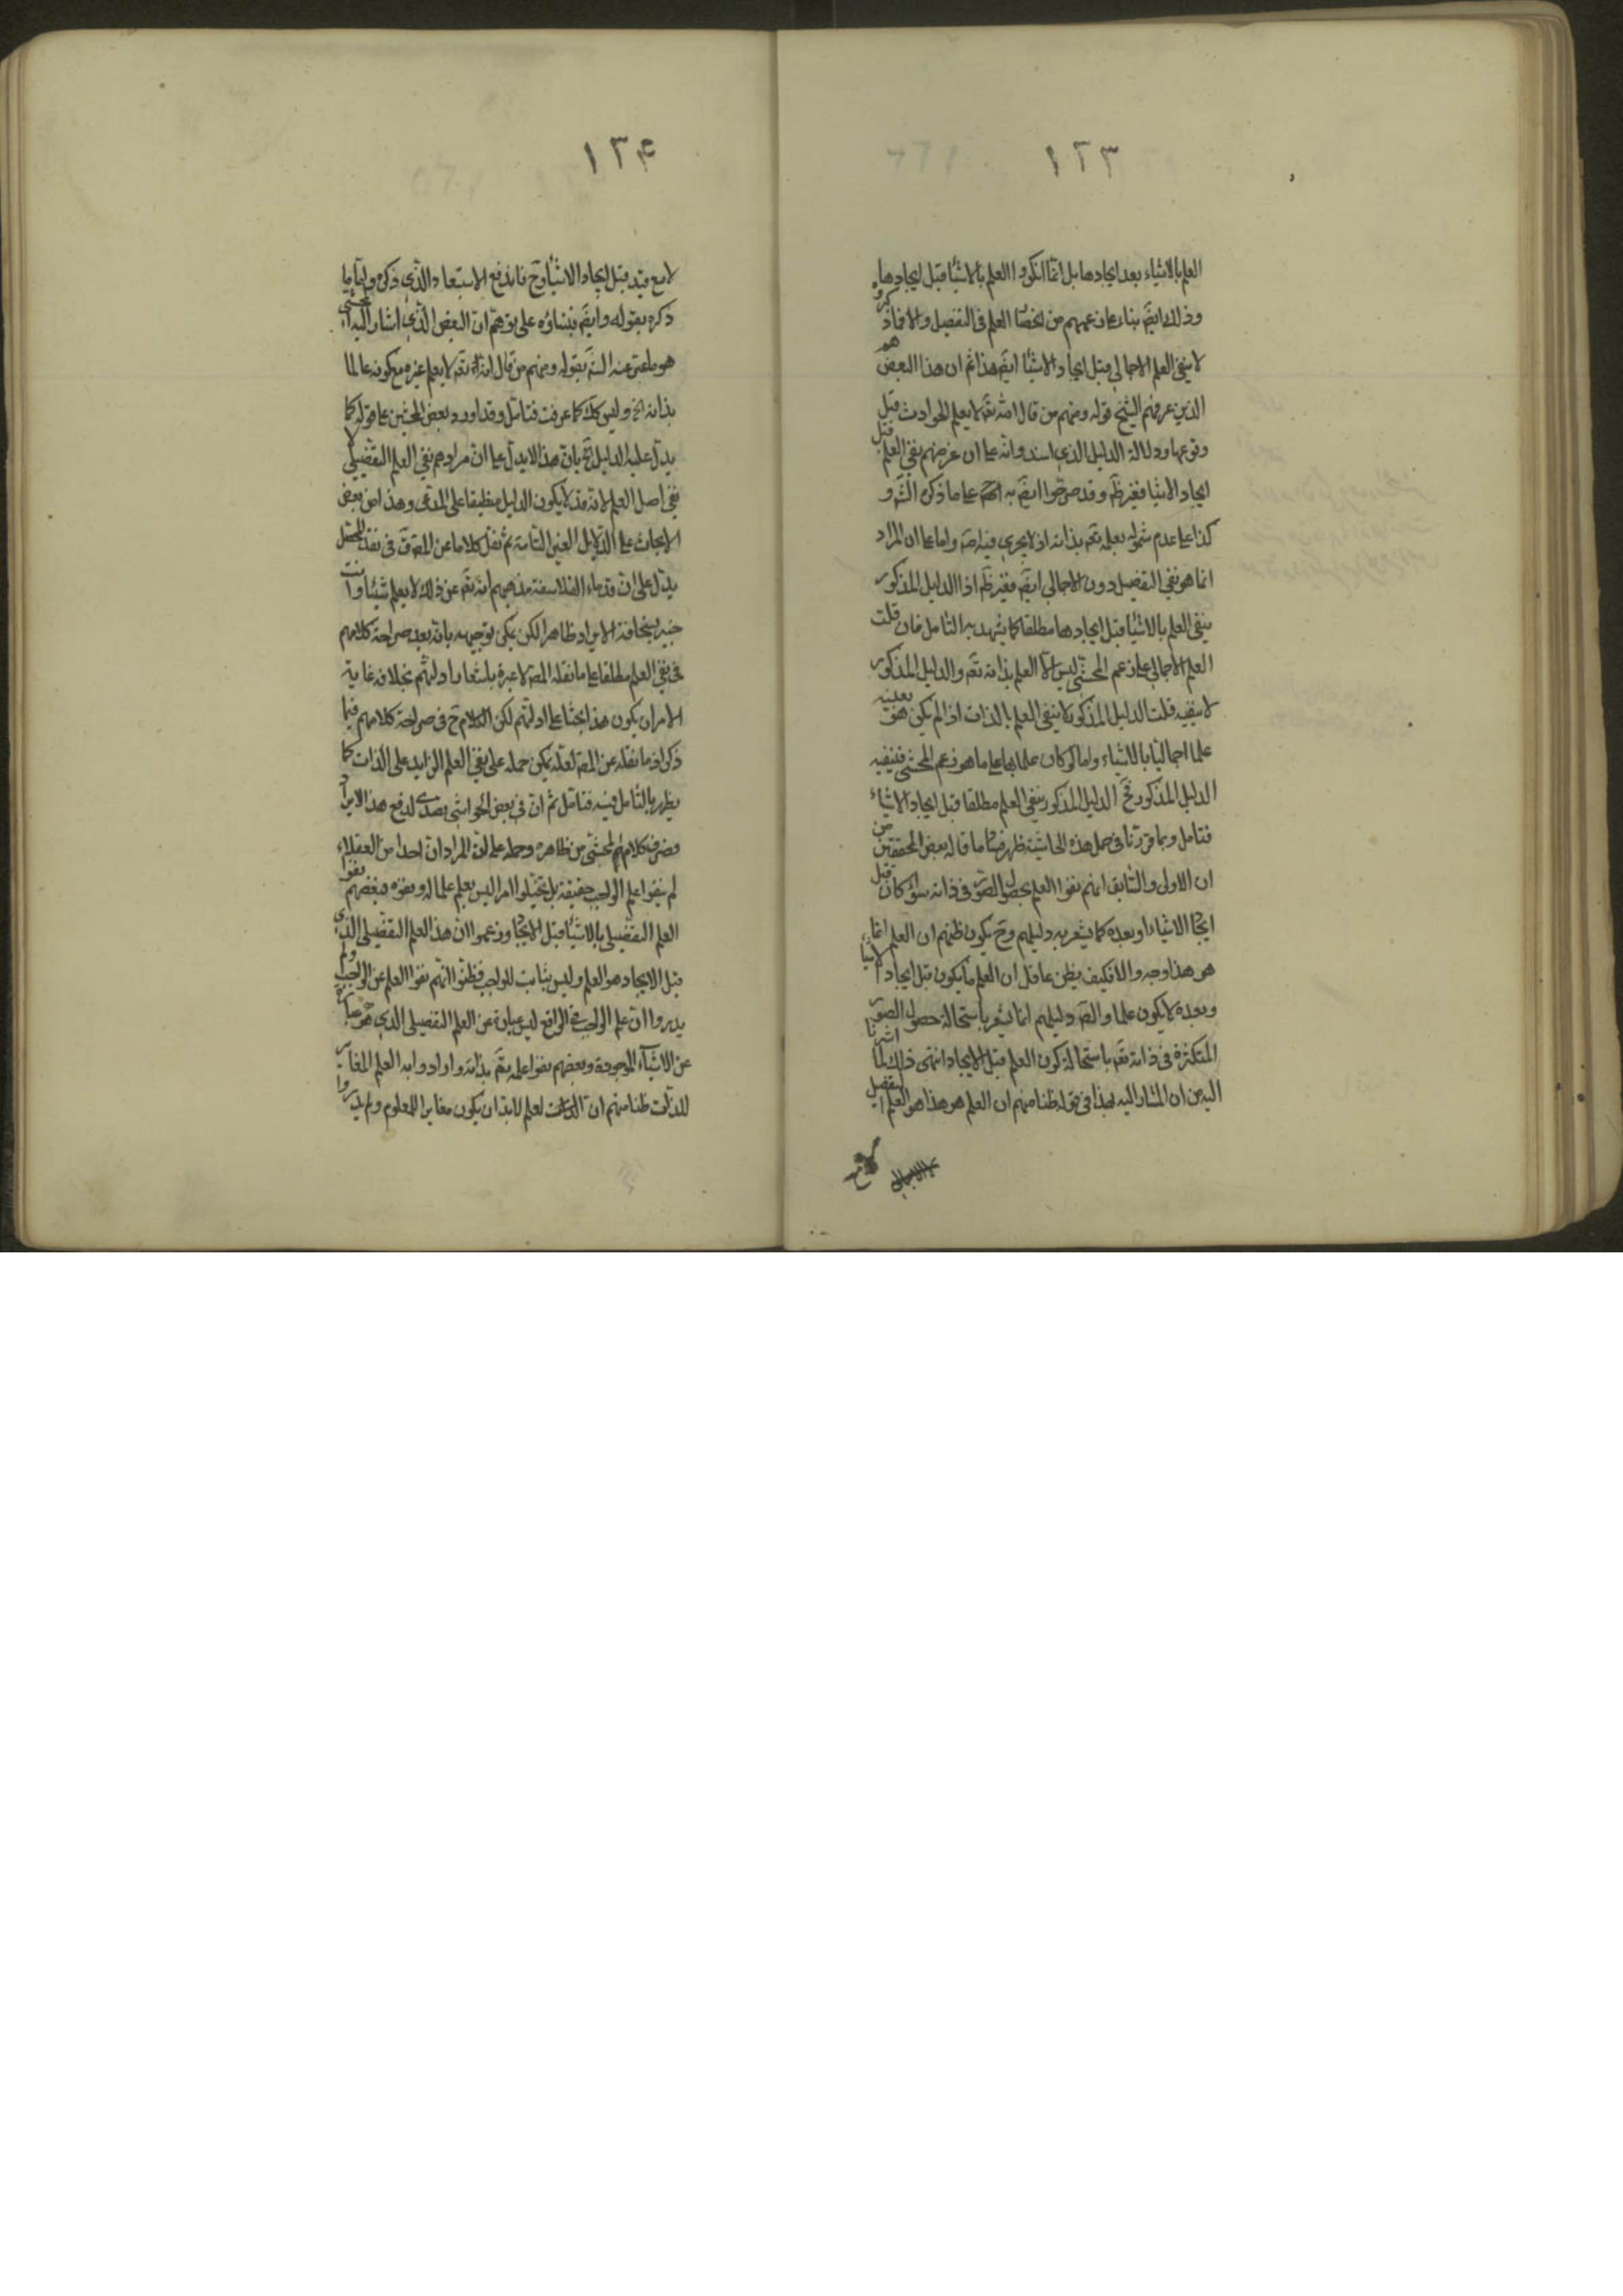 ١٣٣
العلم بالاشياء بعد ايجادها بل انما انكروا العلم بالاشيا قبل ايجادها
وذلك ايضَ بناء على زعمهم من انحصا العلم فى التفصيل والا فما ذكروه
لا ينفى العلم الاجمالى قبل ايجاد الاشيا ايضَ هذا ثم ان هذا البعض هم
الذين عرفهم الشيخ قوله ومنهم من قال انه تعَ لا يعلم الحوادث قبل
وقوعها ودلالة الدليل الذى اسندوا به على ان غرضهم نفى العلم قبل
ايجاد الاشيا فغير ظَم وقد صرحوا ايضَ به على ما ذكره الشَ و
كذا على عدم شموله بعلمه تعَ بذاته اذ لا يجرى فيه اصَ واما على ان المراد
انما هو نفى التفصيل دون الاجمالى ايضَ فغير ظَم اذا الدليل المذكور
ينفى العلم بالاشيا قبل ايجادها مطلقا كما يشهد به التامل فان قلت
العلم الاجمالى على زعم المحشى ليس الا العلم بذاته تعَ والدليل المذكور
لا ينفيه قلت الدليل المذكور لا ينفى العلم بالذات اذا لم يكن هو بعينه
علما اجماليا بالاشياء واما لو كان علما بها على ما هو زعم المحشى فينفيه
الدليل المذكور فحَ الدليل المذكور ينفى العلم مطلقا قبل ايجاد الاشياء
فتامل وبما قررنا فى حمل هذه الحاشية ظهر فسا ما قاله بعض المحققين من
ان الاولى والسابق انهم نفوا العلم بحصول الصور فى ذاته سواء كان قبل
ايجا الاشياء او بعده كما يشعر به دليلهم وحَ يكون ظنهم ان العلم انما
هو هذا وجه والا فكيف يظن عاقل ان العلم ما يكون قبل ايجاد الاشيا
وبعده لا يكون علما وايضَ دليلهم انما يشعر باستحالة حصول الصور
المتكثرة فى ذاته تعَ باستحالة كون العلم قبل الايجاد انتهى ذلك لما اشرنا
اليه من ان المشار اليه بهذا فى قوله ظنا منهم ان العلم هو هذا هو العلم التفصيلى
لا الاجمالى
لا مع
١٣۴
لا مع قيد قبل ايجاد الاشيا وحَ فاندفع الاستبعاد الذى ذكره واما ما
ذكره بقوله وايضَ فبناؤه على توهم ان البعض الذى اشار اليه المحشى
هو ما عبر عنه الشَ بقوله ومنهم من قال انه تعَ لا يعلم غيره مع كونه عالما
بذاته الخ وليس كك كما عرفت فتامل وقد اورد بعض المحشين على قوله كما
يدل عليه الدليل الخ بان هذا لا يدل على ان مرادهم نفى العلم التفصيلى لا
نفى اصل العلم لانه قد لا يكون الدليل منطبقا على المدعى وهذا من بعض
الابحاث على الدلايل الغير التامة ثم نقل كلاما عن المصَ فى نقد المحصل
يدل على ان قدماء الفلاسفة مذهبهم انه تعَ عن ذلك لا يعلم شيئا وانت
خبير بسخافة الايراد ظاهرا لكن يمكن توجيهه بانه بعد صراحة كلامهم
فى نفى العلم مطلقا على ما نقله المصَ لا عبرة باشعار ادلتهم بخلافه غاية
الامر ان يكون هذا بحثا على ادلتهم لكن الكلام حَ فى صراحة كلامهم فيما
ذكر اذ ما نقله عن المصَ لعله يمكن حمله على نفى العلم الزايد على الذات كما
يظهر بالتامل فيه فتامل ثم ان فى بعض الحواشى تصدى لدفع هذا الايراد
وصرف كلام المحشى من ظاهره وحمله على ان المراد ان احدا من العقلاء
لم ينفوا علم الواجب حقيقة بل تخيلوا امرا ليس بعلم علما له ونفوه فبعضهم نفوا
العلم التفصيلى بالاشيا قبل الايجا وزعموا ان هذا العلم التفصيلى الذى
قبل الايجاد هو العلم وليس بثابت للواجب فظنوا انهم نفوا العلم عن الواجب ولم
يدروا ان علم الواجب فى الواقع ليس عبارة عن العلم التفصيلى الذى هو عبارة
عن الاشياء الموجودة وبعضهم نفوا علمه تعَ بذاته وارادوا به العلم المغاير
للذات ظنا منهم ان العلم لا بد ان يكون مغايرا للمعلوم ولم يدروا